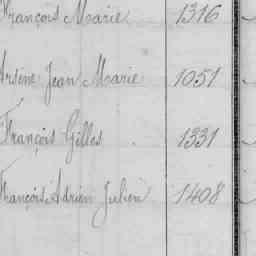 François Marie 1316
Arsène Jean Marie 1051
François Gilles 1331
François Adrien Julien 1408